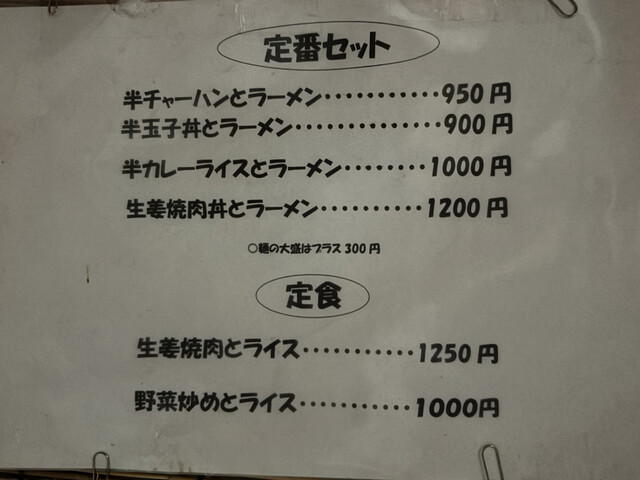 定番セット
半チャーハンとラーメン・・・・・・・・・・・950円
半玉子丼とラーメン・・・・・・・・・・・・・・900円
半カレーライスとラーメン・・・・・・・・1000円
生姜焼肉丼とラーメン・・・・・・・・・・1200円
○麺の大盛はプラス300円
定食
生姜焼肉とライス・・・・・・・・・・・1250円
野菜炒めとライス・・・・・・・・・・・1000円